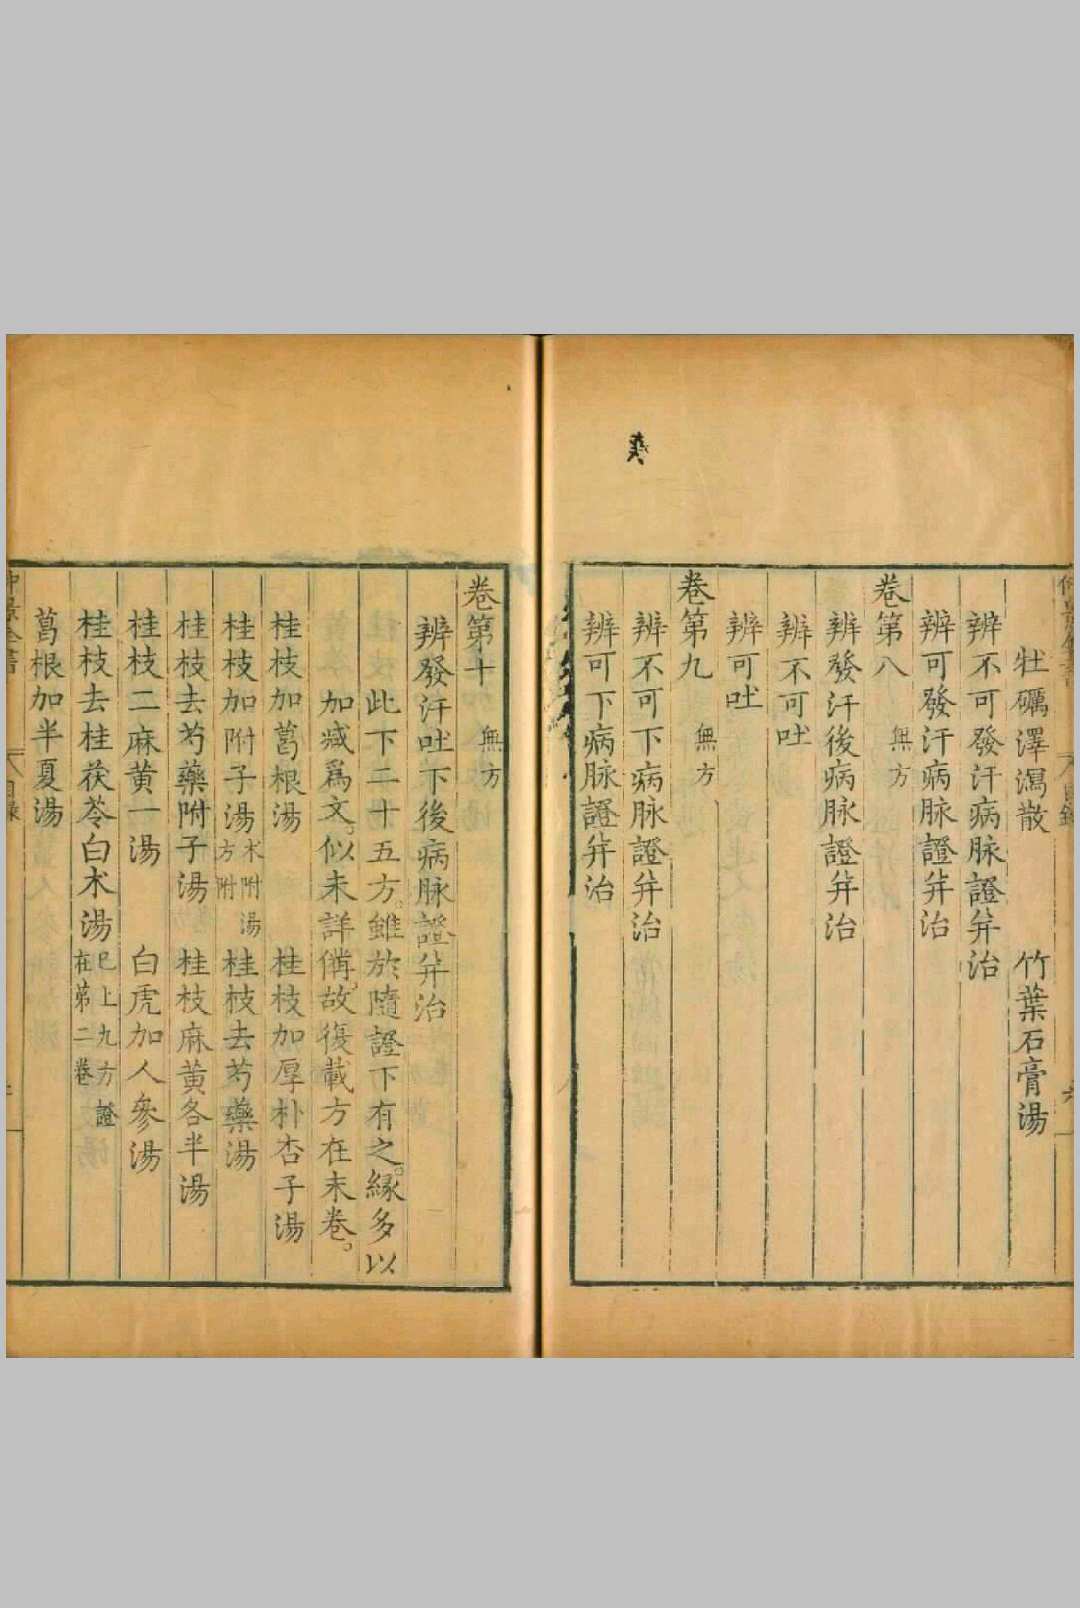 牡礪澤瀉散 竹葉石膏湯
辨不可發汗病脉證并治
辨可發汗病脉證并治
卷第八 無方
辨發汗後病脉證并治
辨不可吐
辨可吐
卷第九 無方
辨不可下病脉證并治
辨可下病脉證并治
卷第十 無方
辨發汗吐下後病脉證并治
此下二十五方。雖於隨證下有之。緣多以
加减爲文。似未詳備。故復載方在末卷。
桂枝加葛根湯 桂枝加厚朴杏子湯
桂枝加附子湯术附湯方附 桂枝去芍藥湯
桂枝去芍藥附子湯 桂枝麻黄各半湯
桂枝二麻黄一湯 白虎加人參湯
桂枝去桂茯苓白术湯巳上九方證在第二卷
葛根加半夏湯
仲景全書 目錄